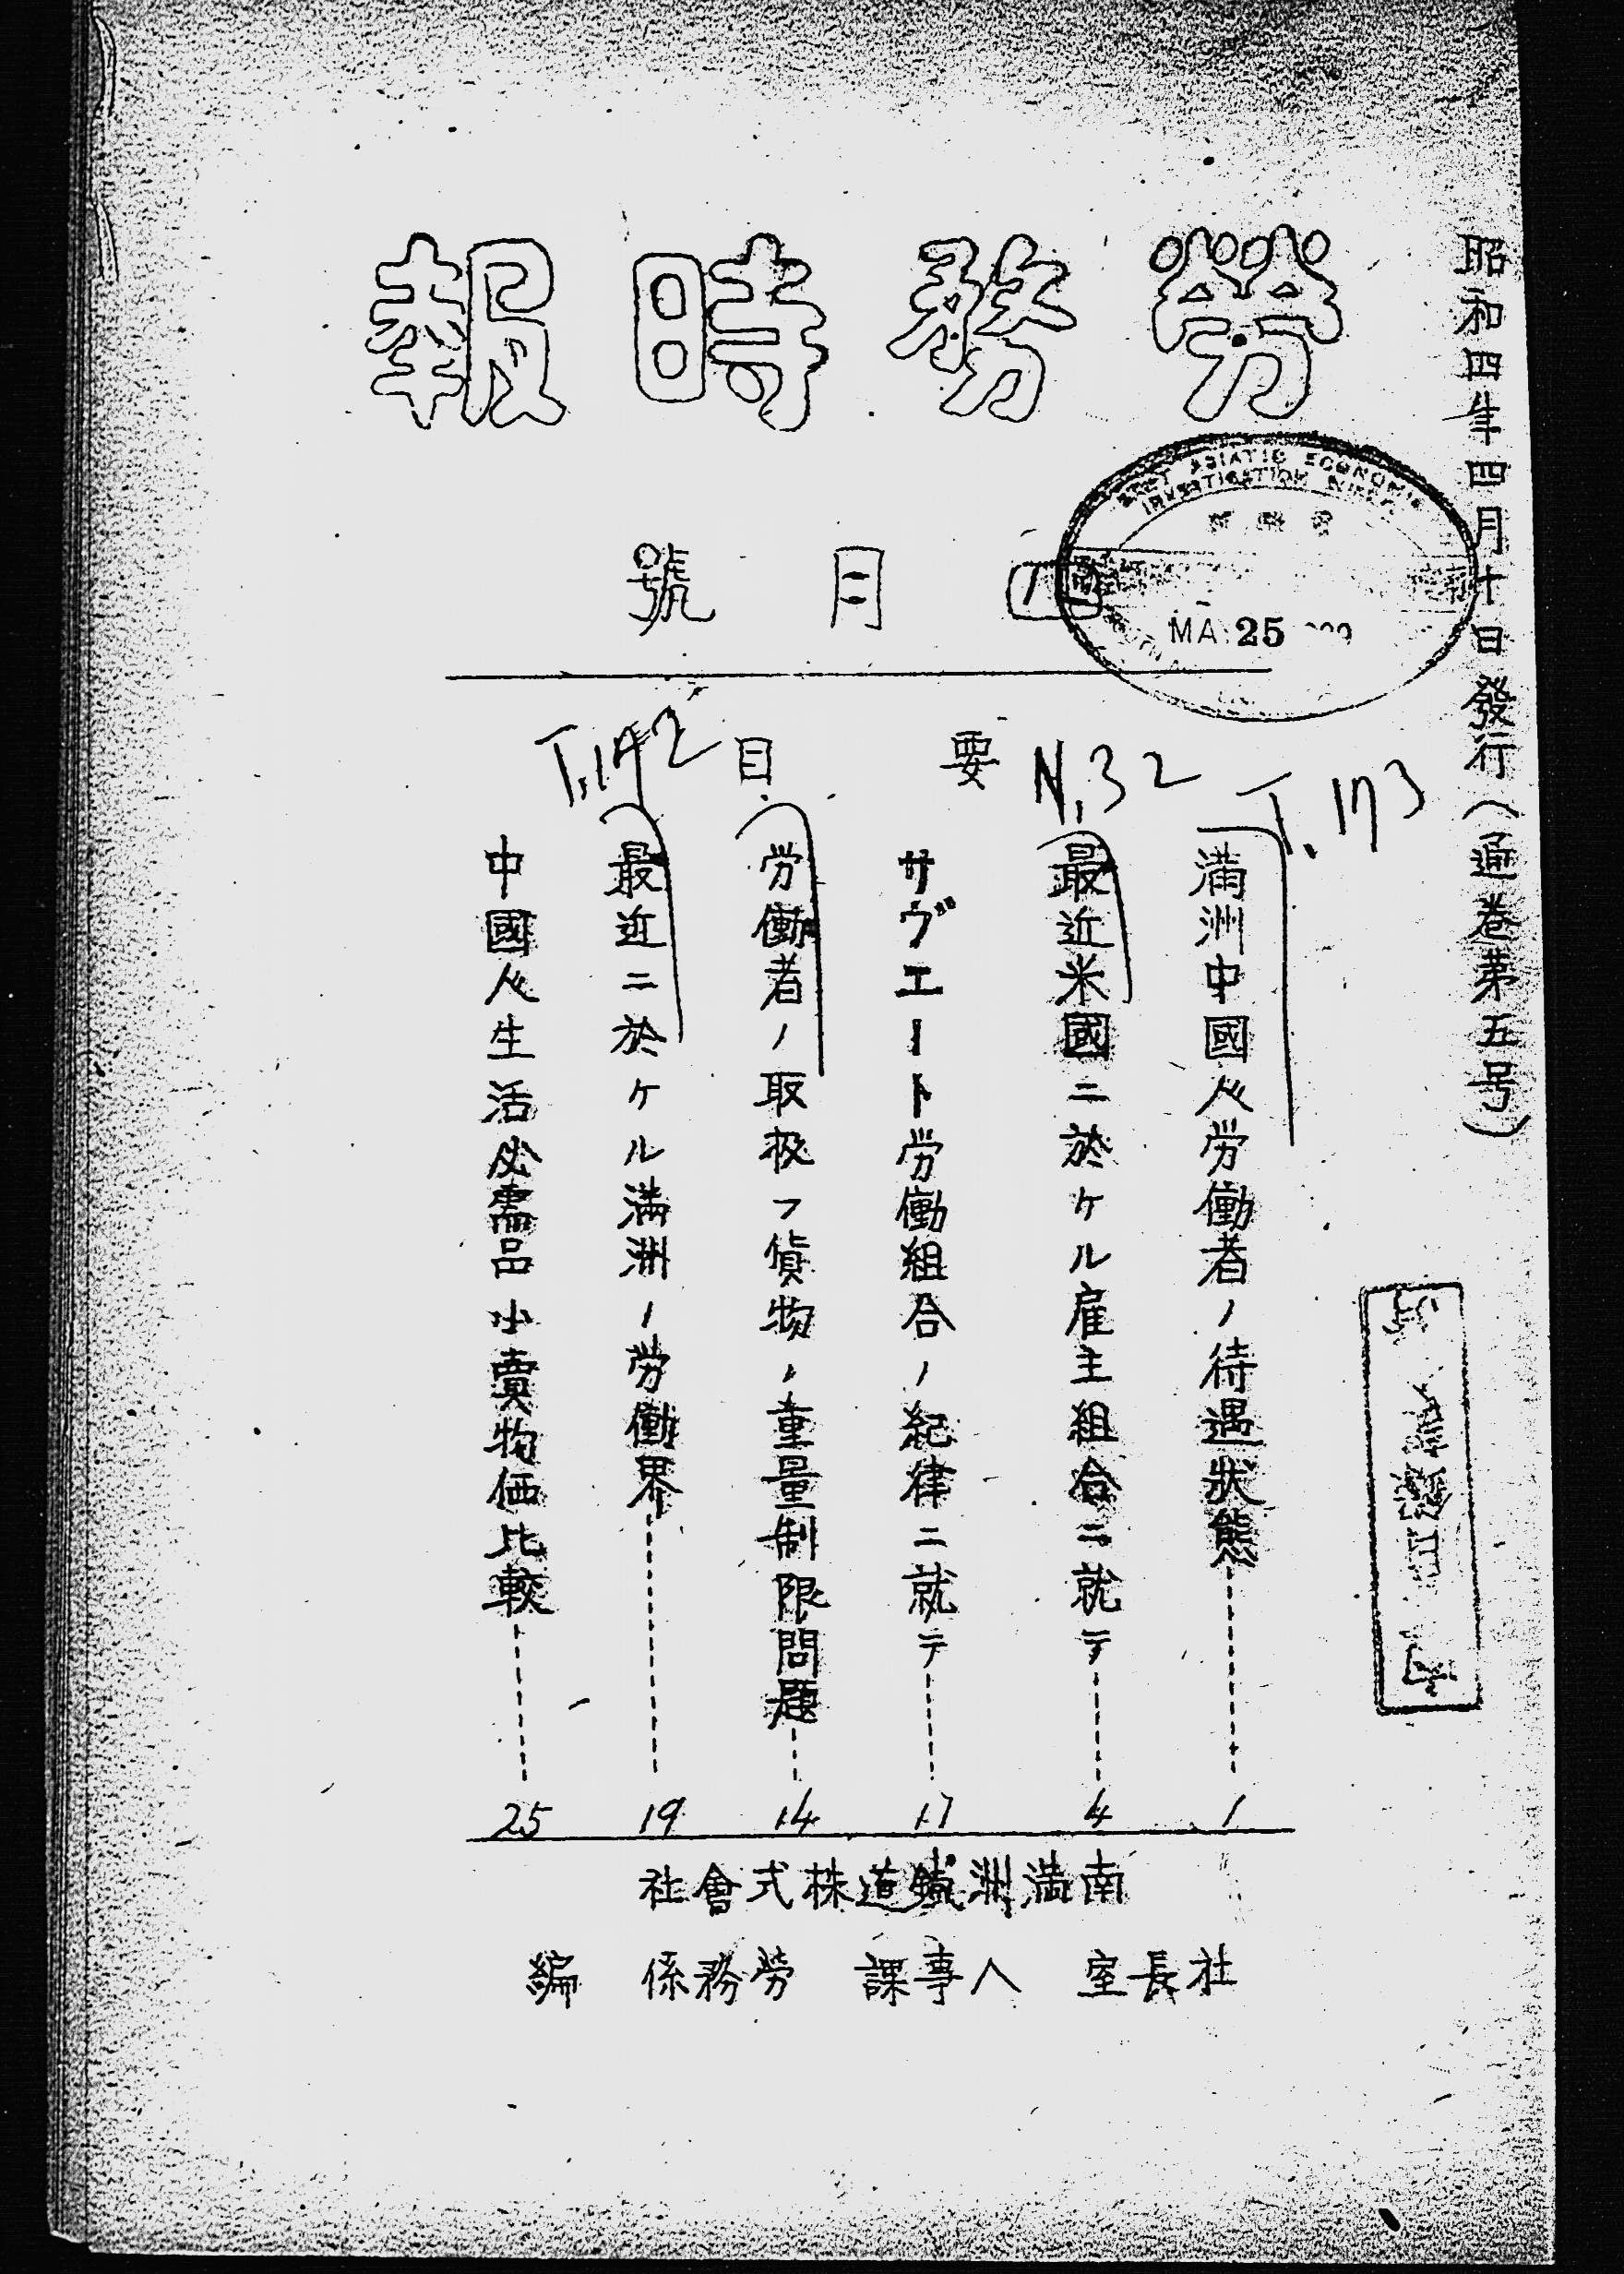 昭和四年四月十日發行(通巻第五号)
勞務時報
四月號
EAST ASIATIC ECONOMIC
INVESTIGATION
25
要目
T.173
N.32
T.142
満洲中國人労働者ノ待遇狀態 1
最近米國ニ於ケル雇主組合ニ就テ 4
サヴエート労働組合ノ紀律ニ就テ 11
労働者ノ取扱フ貨物ノ重量制限問題 14
最近ニ於ケル満洲ノ労働界 19
中國人生活必需品小賣物価比較 25
南満洲鐵道株式會社
社長室 人事課 勞務係 編